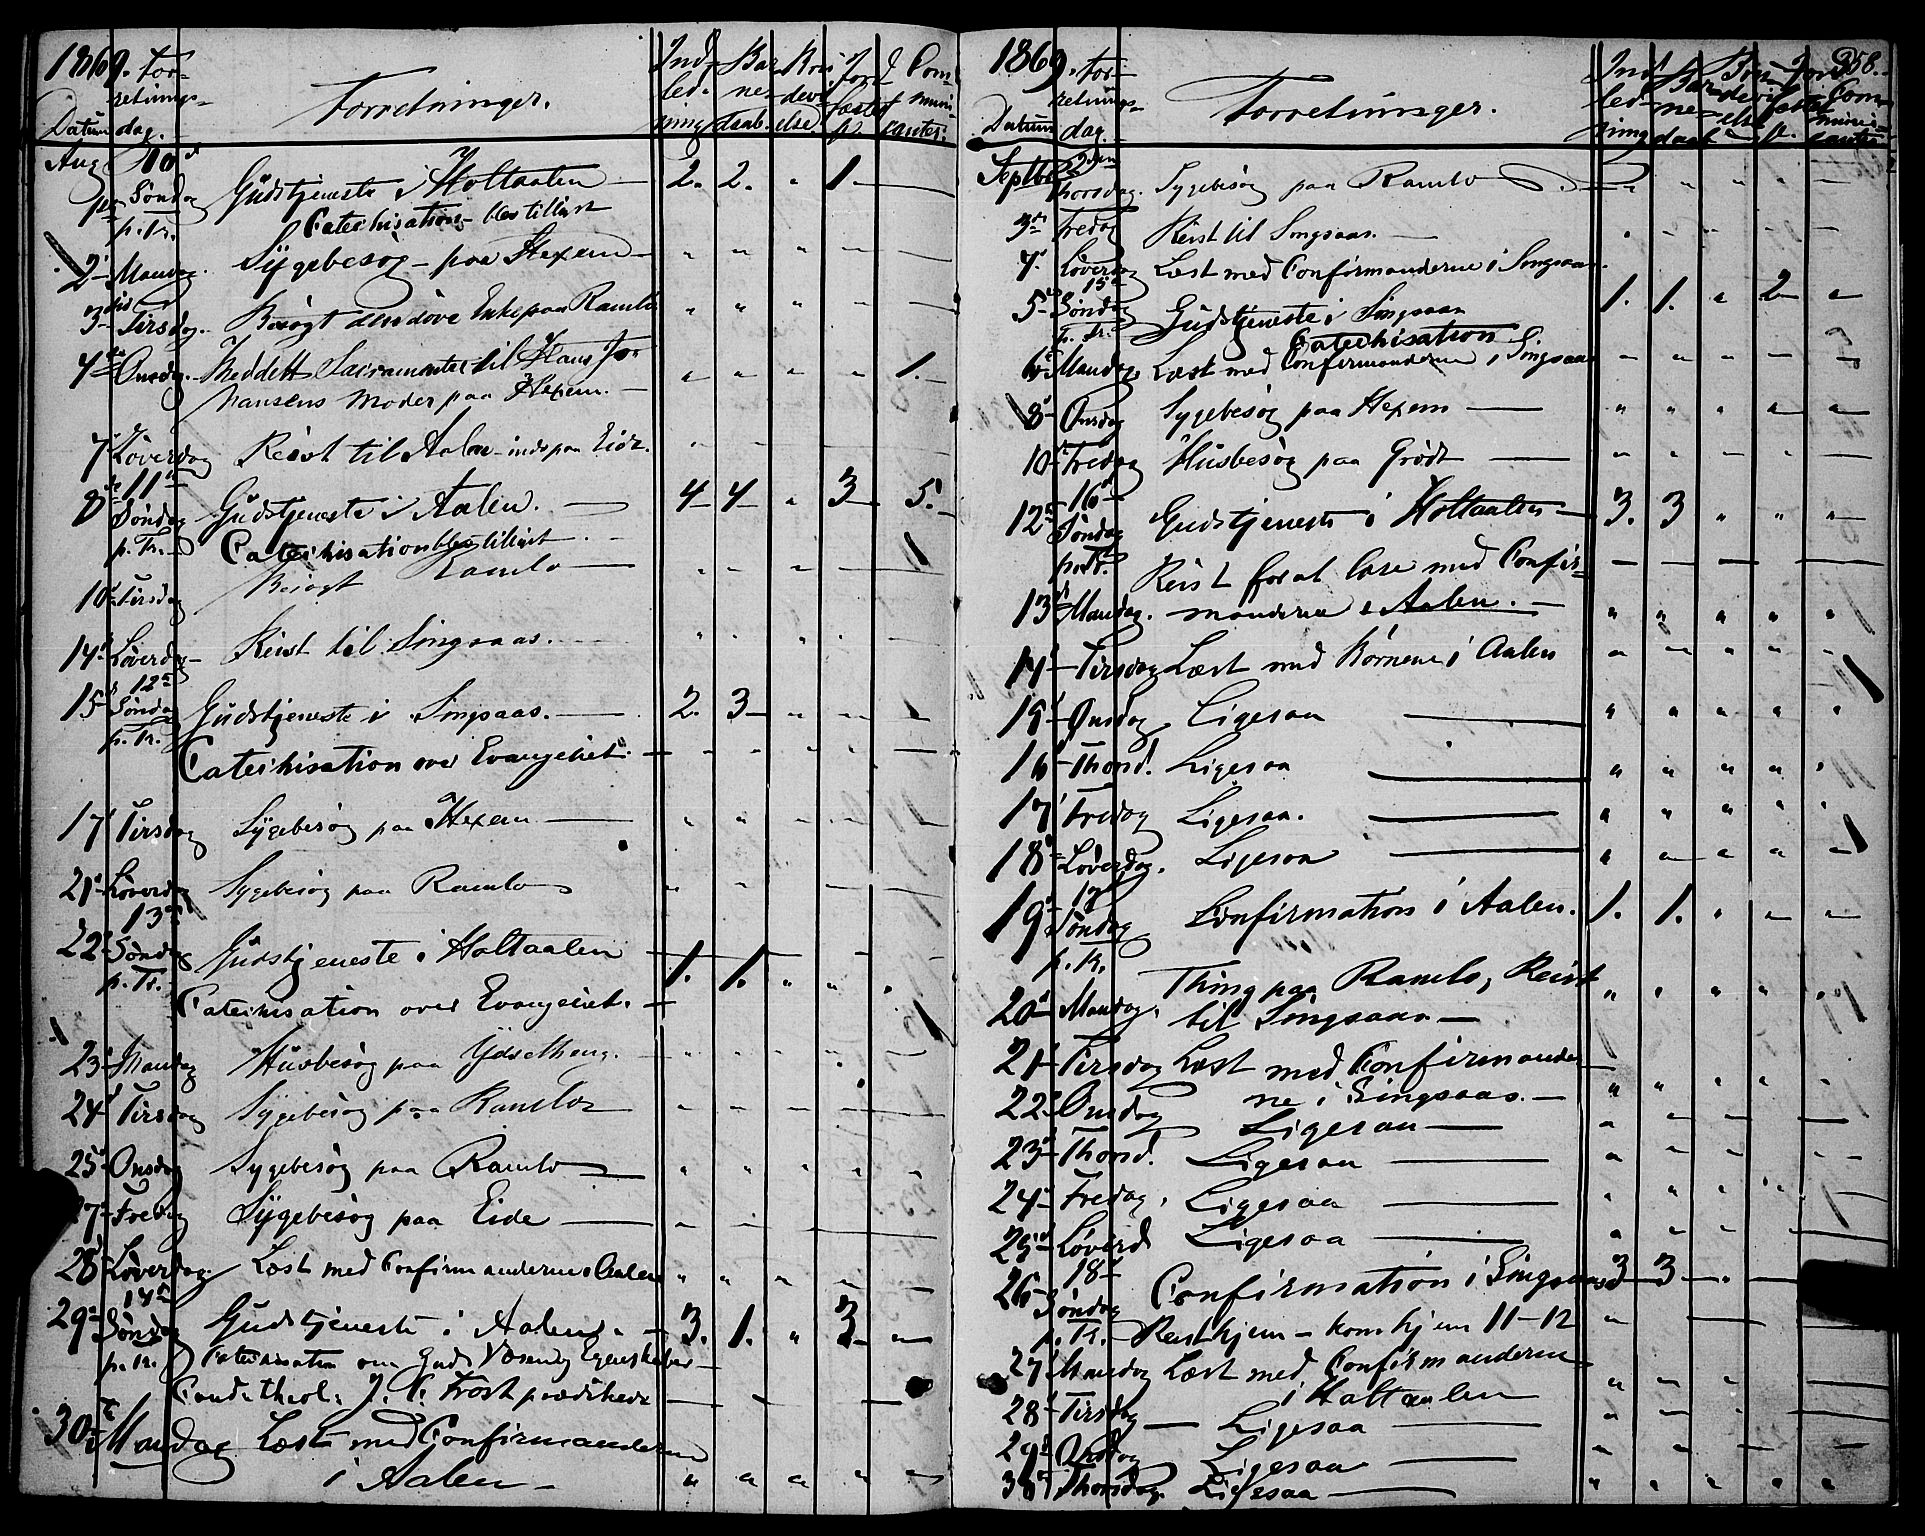 1869. For-
retnings-
Datum dag.
Forretninger.
Ind-
led-
ning
Bar
ne-
daab.
Kon
devit
else
Jord
fæstet
p
Com
muni-
canter.
Aug 10de
1ste Søndag Gudstjeneste i Holtaalen 2. 2. " 1.
p. Tr. Catechisation blev tillyst
2 Mandag. Sygebesøg paa Hexem " " " "
3 Tirsdag. Besøgt den døve Enke paa Ramlo " " "
4de Onsdag. Meddelt Sacramentet til Hans Jo- " " " " 1.
hansens Moder paa Hexem.
7 Løverdag Reist til Aalen - inde paa Eide. " "
11te
8de Søndag Gudstjeneste i Aalen. 4 4 " 3 5.
p. Tr. Catechisation blev tillyst
10 Tirsdag Besøgt Ramlo " " "
14 Løverdag Reist til Singsaas. " " " "
12te
15 Søndag Gudstjeneste i Singsaas. 2. 3 " " "
p. Tr.
Catechisation over Evangeliet. " " " "
17 Tirsdag Sygebesøg paa Hexem " " " "
21 Løverdag Sygebesøg paa Ramlo " " "
13de
22 Søndag Gudstjeneste i Holtaalen 1. 1. " " "
p. Tr.
Catechisation over Evangeliet.
23 Mandag Husbesøg paa " " " "
24 Tirsdag Sygebesøg paa Ramlo " " " "
25 Onsdag Sygebesøg paa Ramlo " " " " "
27 Fredag Sygebesøg paa Eide " " "
28 Løverdag Læst med Confirmanderne i Aalen " " " "
14de
29 Søndag Gudstjeneste i Aalen. 3. 1. " 3 "
p. Tr. Catechisation om Guds Væsen og Egenskaber
Cand. theol. J. C. Frost prædikede
30te Mandag Læst med Confirmanderne
i Aalen " " " " "
1869. For-
retnings-
Datum dag.
Forretninger.
358.
Ind
led-
ning
Bar
ne-
daab
Kon
devit
else
Jord
fæstet
p.
Com
muni-
canter
Septbr 2den
Thorsdag. Sygebesøg paa Ramlo " " " "
3de Fredag Reist til Singsaas.
4 Løverdag Læst med Confirmanderne i Singsaas.
15de
5 Søndag Gudstjeneste i Singsaas 1. 1. " 2 "
p. Tr. Catechisation
6 Mandag. Læst med Confirmanderne i Singsaas " " " "
8 Onsdag Sygebesøg paa Hexem " " " " "
10 Fredag Husbesøg paa Grødt " " " " "
16de
12 Søndag Gudstjeneste i Holtaalen 3. 3 " " "
p. Tr. Reist for at læse med Confir-
13 Mandag. manderne i Aalen. " " " " "
14 Tirsdag Læst med Børnene i Aalen " " " " "
15 Onsdag Ligesaa " " " " "
16 Thorsd. Ligesaa " " " " "
17 Fredag Ligesaa. " " " " "
18 Løverdag. Ligesaa " " " " "
17de
19 Søndag Confirmation i Aalen. 1. 1. " " "
p. Tr.
Thing paa Ramlo, Reist
20 Mandag. til Singsaas " " " " "
21 Tirsdag Læst med Confirmander-
22 Onsdag ne i Singsaas.
Ligesaa
23 Thorsd. Ligesaa
24 Fredag. Ligesaa " " " "
25 Løverd Ligesaa " " " "
18de
26 Søndag Confirmation i Singsaas 3 3 "
p. Tr. Reist hjem - kom hjem 11-12
27 Mandag Læst med Confirmanderne
i Holtaalen
28 Tirsdag Ligesaa
29 Onsdag Ligesaa
30 Thorsdag. Ligesaa " " " " "